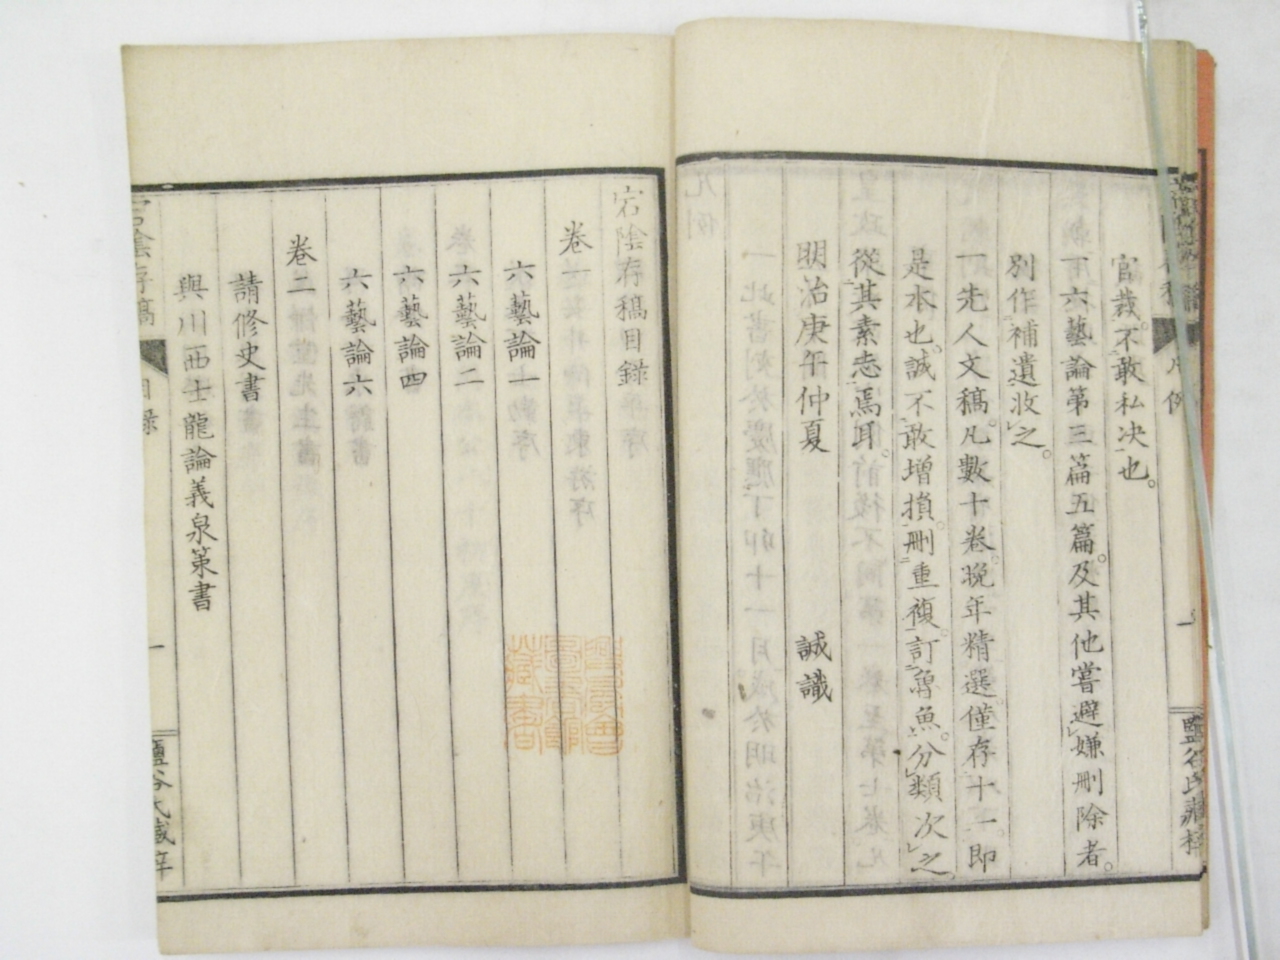 官裁。不敢私决也。
一六藝論第三篇五篇。及其他嘗避嫌刪除者。
別作補遺收之。
一先人文稿。凡數十卷。晚年精選僅存十一。即
是本也。誠不敢增損。刪重複。訂魯魚。分類次之。
從其素志焉耳。
明治庚午仲夏 誠識
宕陰存稿目録
卷一
六藝論一
六藝論二
六藝論四
六藝論六
卷二
請修史書
與川西士龍論義泉策書
宕陰存稿 目録 一 鹽谷氏藏梓
凡例 一 鹽谷氏藏梓